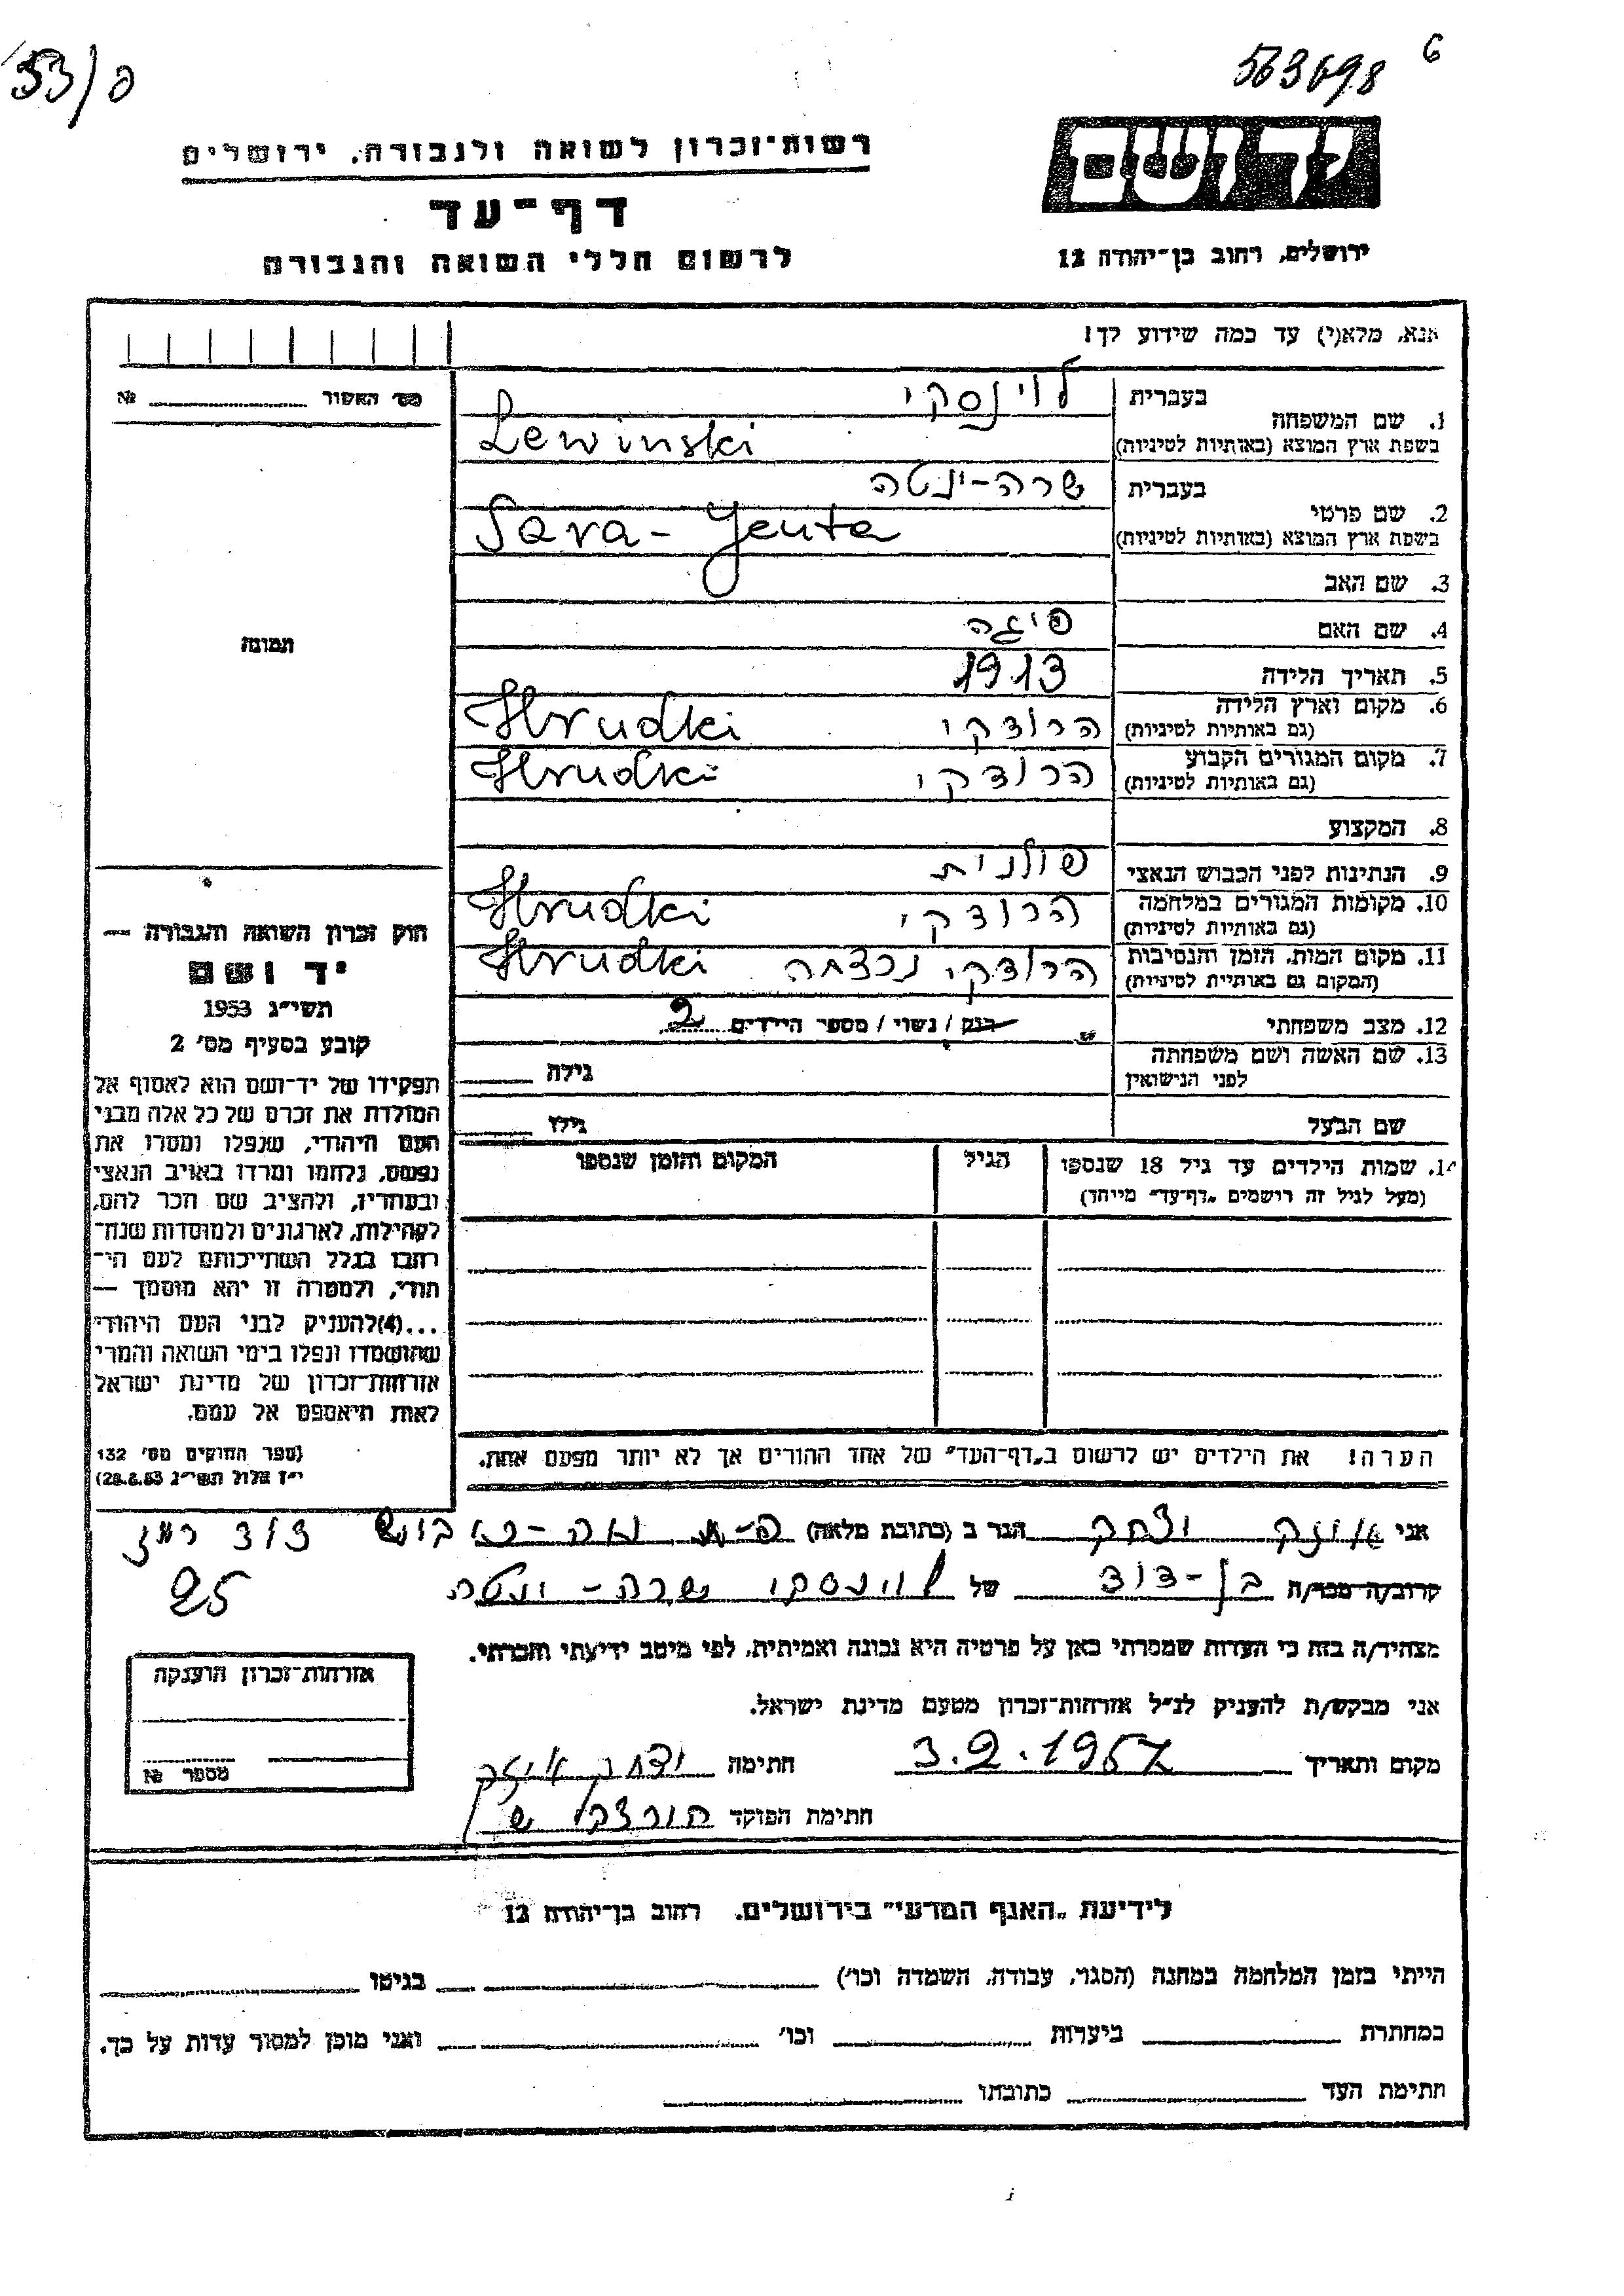 53/פ
563698 6
יד ושם
ירושלים, רחוב בן־יהודה 12
רשות־זכרון לשואה ולגבורה, ירושלים
דף־עד
לרשום חללי השואה והגבורה
אנא, מלא(י) עד כמה שידוע לך!
מס' האשור № 
1. שם המשפחה בעברית לוינסקי
בשפת ארץ המוצא (באותיות לטיניות) Lewinski
2. שם פרטי בעברית שרה-ינטה
בשפת ארץ המוצא (באותיות לטיניות) Sara - Jenta
3. שם האב
4. שם האם פיגה
5. תאריך הלידה 1913
6. מקום וארץ הלידה הרודקי Hrudki
(גם באותיות לטיניות)
7. מקום המגורים הקבוע הרודקי Hrudki
(גם באותיות לטיניות)
8. המקצוע
9. הנתינות לפני הכבוש הנאצי פולנית
10. מקומות המגורים במלחמה הרודקי Hrudki
(גם באותיות לטיניות)
11. מקום המות, הזמן והנסיבות הרודקי נרצחה Hrudki
(המקום גם באותיות לטיניות)
12. מצב משפחתי רווק / נשוי / מספר הילדים 2
13. שם האשה ושם משפחתה גילה
לפני הנישואין
שם הבעל גילו
14. שמות הילדים עד גיל 18 שנספו הגיל המקום והזמן שנספו
(מעל לגיל זה רושמים „דף־עד" מיוחד)
הערה! את הילדים יש לרשום ב„דף־העד" של אחד ההורים אך לא יותר מפעם אחת.
תמונה
חוק זכרון השואה והגבורה —
יד ושם
תשי״ג 1953
קובע בסעיף מס' 2
תפקידו של יד־ושם הוא לאסוף אל
המולדת את זכרם של כל אלה מבני
העם היהודי, שנפלו ומסרו את
נפשם, נלחמו ומרדו באויב הנאצי
ובעוזריו, ולהציב שם וזכר להם,
לקהילות, לארגונים ולמוסדות שנח־
רבו בגלל השתייכותם לעם הי־
הודי, ולמטרה זו יהא מוסמך —
...(4)להעניק לבני העם היהודי
שהושמדו ונפלו בימי השואה והמרי
אזרחות־זכרון של מדינת ישראל
לאות היאספם אל עמם.
(ספר החוקים מס' 132
י״ז אלול תשי״ג 28.8.53)
אני איזק יצחק הגר ב (כתובת מלאה)
25
קרוב/ה מכר/ה בן-דוד של לוינסקי שרה-ינטה
מצהיר/ה בזה כי העדות שמסרתי כאן על פרטיה היא נכונה ואמיתית, לפי מיטב ידיעתי והכרתי.
אני מבקש/ת להעניק לנ״ל אזרחות־זכרון מטעם מדינת ישראל.
מקום ותאריך 3.2.1957 חתימה יצחק איזק
חתימת הפוקד
אזרחות־זכרון הוענקה
מספר №
לידיעת „האגף המדעי" בירושלים, רחוב בן־יהודה 12
הייתי בזמן המלחמה במחנה (הסגר, עבודה, השמדה וכו') בגיטו
במחתרת ביערות וכו' ואני מוכן למסור עדות על כך.
חתימת העד כתובתו